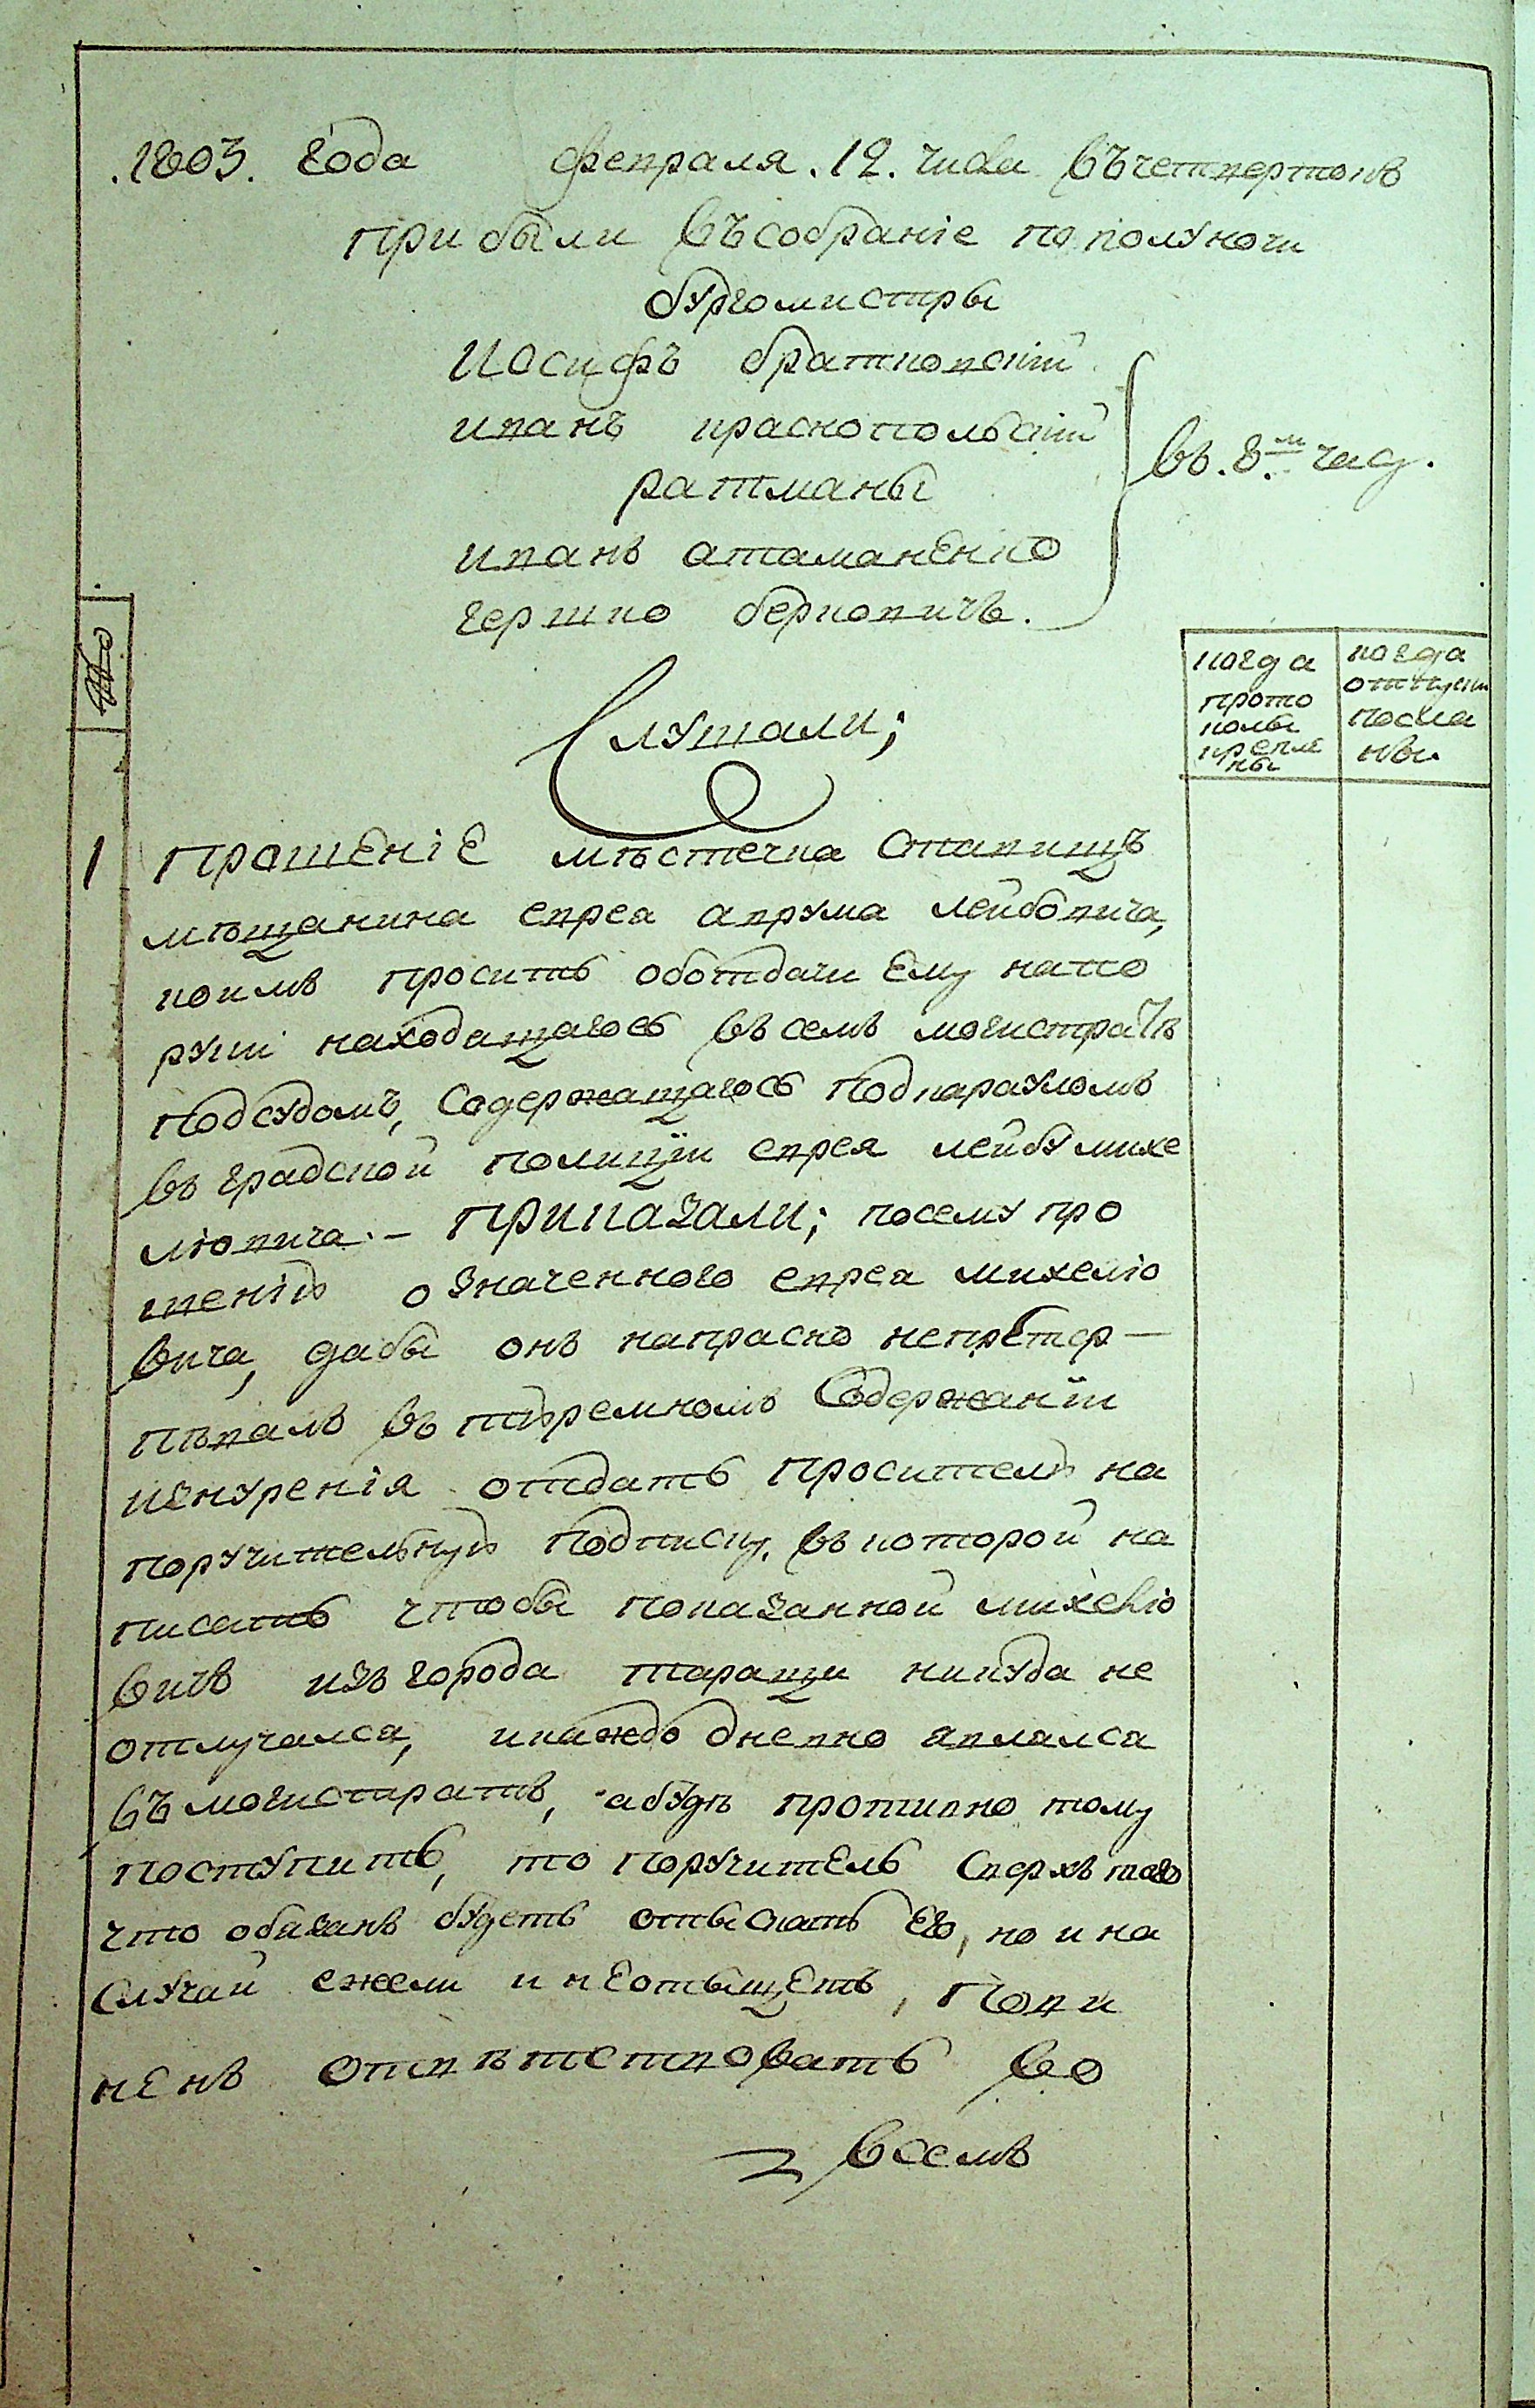 .1803. года февраля .12. числа въ четвертокъ
прибыли въ собраніе по полуночи
бургомистры
Иосифъ братковскій
иванъ краснопольскій
въ. 8.м час.
ратманы
иванъ атаманенко
гершко берковичъ.
когда прото колы крепле ны
когда отпуски посла ны
№
Слушали;
1 Прошеніе мѣстечка Ставищъ
мѣщанина еврея аврума лейбовича,
коимъ проситъ оботдачи Ему напо
руки находящагося въ семъ магистратѣ
подсудомъ, Содержащагося подкарауломъ
въ градской полиціи еврея лейбу михе
ліовича. – Приказали; посему про
шенію означенного еврея михеліо
вича, дабы онъ напрасно непретер–
пѣвалъ въ тюремномъ Содержаніи
изнуренія отдать просителю на
поручительную подписку, въ которой на
писать чтобы показанной михеліо
вичъ изъ города таращи никуда не
отлучался, икаждо дневно являлся
въ магистратъ, абудѣ противно тому
поступитъ, то поручитель Сверхъ того
что обязанъ будетъ отыскать Его, но и на
Случай ежели и неотыщетъ, Пови
ненъ отвѣтствовать во
всемъ